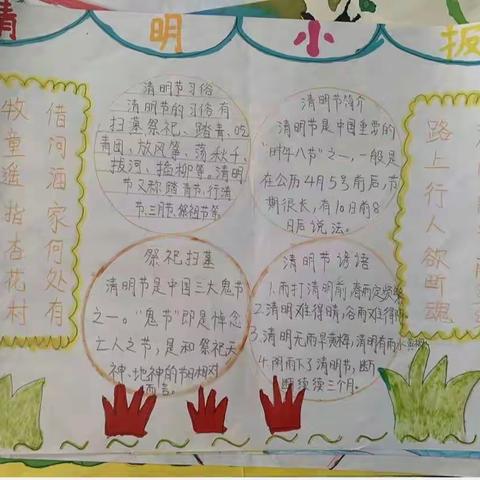 清 明 小 报
路上行人欲断魂
借问酒家何处有
牧童遥指杏花村
清明节习俗
清明节的习俗有
扫墓祭祀、踏青、吃
青团、放风筝、荡秋千、
拔河、插柳等。清明
节又称踏青节、行清
节、三月节、祭祖节等。
清明节简介
清明节是中国重要的
"时年八节"之一,一般是
在公历4月5号前后,节
期很长,有10日前8
日后说法。
祭祀扫墓
清明节是中国三大鬼节
之一。"鬼节"即是悼念
亡人之节,是和祭祀天
神、地神的节日相对
而言。
清明节谚语
1.雨打清明前,春雨定频繁
2.清明难得晴,谷雨难得阴
3.清明无雨旱黄梅,清明有雨水黄梅
4.阴雨下了清明节,断
断续续三个月。